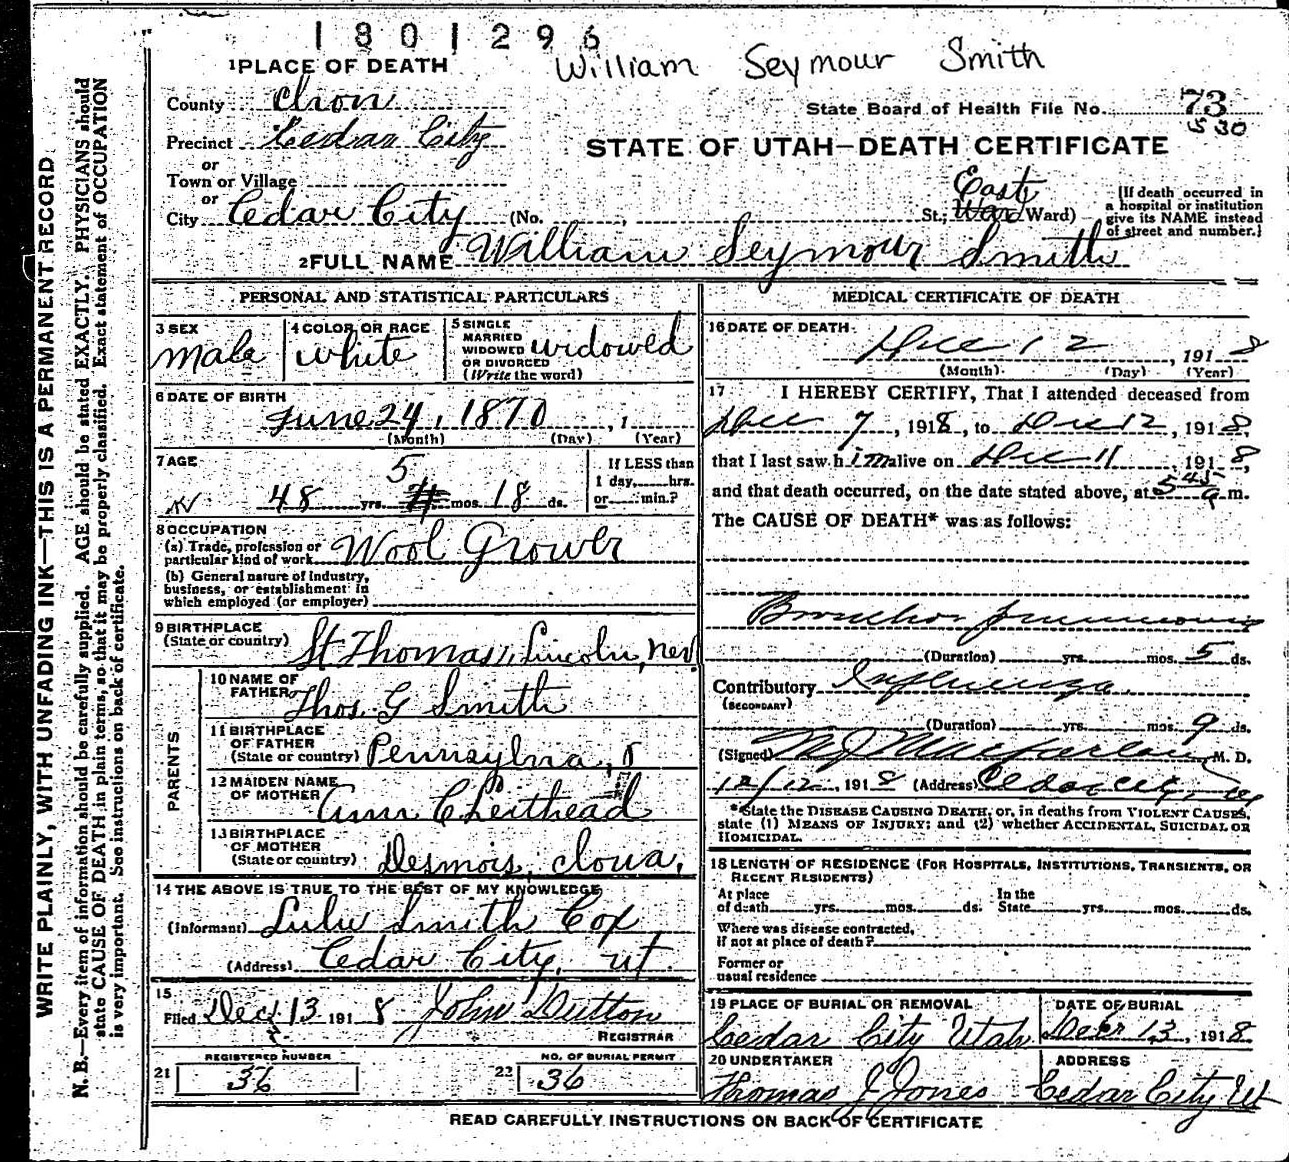 1801296
William Seymour Smith
1 PLACE OF DEATH
County Iron
State Board of Health File No. 73
S 30
Precinct Cedar City
STATE OF UTAH—DEATH CERTIFICATE
or
Town or Village
or
City Cedar City (No. , St.; East Ward Ward)
[If death occurred in
a hospital or institution
give its NAME instead
of street and number.]
2 FULL NAME William Seymour Smith
PERSONAL AND STATISTICAL PARTICULARS
3 SEX
male
4 COLOR OR RACE
white
5 SINGLE
MARRIED
WIDOWED
OR DIVORCED
(Write the word)
widowed
6 DATE OF BIRTH
June 24, 1870, 1
(Month) (Day) (Year)
7 AGE
5
48 yrs. mos. 18 ds.
If LESS than
1 day, hrs.
or min.?
8 OCCUPATION
(a) Trade, profession or
particular kind of work Wool Grower
(b) General nature of industry,
business, or establishment in
which employed (or employer)
9 BIRTHPLACE
(State or country) St Thomas, Lincoln, Nev.
PARENTS
10 NAME OF
FATHER Thos. G Smith
11 BIRTHPLACE
OF FATHER
(State or country) Pennsylvna,
12 MAIDEN NAME
OF MOTHER Ann
13 BIRTHPLACE
OF MOTHER
(State or country) Desmois, Iowa.
14 THE ABOVE IS TRUE TO THE BEST OF MY KNOWLEDGE
(Informant) Lulu Smith Cox
(Address) Cedar City, ut.
15
Filed Dec 13 1918 John Dutton
REGISTRAR
REGISTERED NUMBER
21 36
NO. OF BURIAL PERMIT
22 36
MEDICAL CERTIFICATE OF DEATH
16 DATE OF DEATH
Dec 12, 1918
(Month) (Day) (Year)
17 I HEREBY CERTIFY, That I attended deceased from
Dec 7, 1918, to Dec 12, 1918,
that I last saw him alive on Dec 11, 1918,
and that death occurred, on the date stated above, at 5 45 a m.
The CAUSE OF DEATH* was as follows:
Broncho pneumonia
(Duration) yrs. mos. 5 ds.
Contributory Influenza
(SECONDARY)
(Duration) yrs. mos. 9 ds.
(Signed) M J Macfarlane M. D.
12/12, 1918 (Address) Cedar City, Ut
*State the DISEASE CAUSING DEATH, or, in deaths from VIOLENT CAUSES,
state (1) MEANS OF INJURY; and (2) whether ACCIDENTAL, SUICIDAL OR
HOMICIDAL.
18 LENGTH OF RESIDENCE (FOR HOSPITALS, INSTITUTIONS, TRANSIENTS, OR
RECENT RESIDENTS)
At place
of death yrs. mos. ds.
In the
State yrs. mos. ds.
Where was disease contracted,
if not at place of death?
Former or
usual residence
19 PLACE OF BURIAL OR REMOVAL
Cedar City Utah
DATE OF BURIAL
Decr 13, 1918
20 UNDERTAKER
Thomas J Jones
ADDRESS
Cedar City Ut
READ CAREFULLY INSTRUCTIONS ON BACK OF CERTIFICATE
WRITE PLAINLY, WITH UNFADING INK—THIS IS A PERMANENT RECORD
N. B.—Every item of information should be carefully supplied. AGE should be stated EXACTLY. PHYSICIANS should
state CAUSE OF DEATH in plain terms, so that it may be properly classified. Exact statement of OCCUPATION
is very important. See instructions on back of certificate.